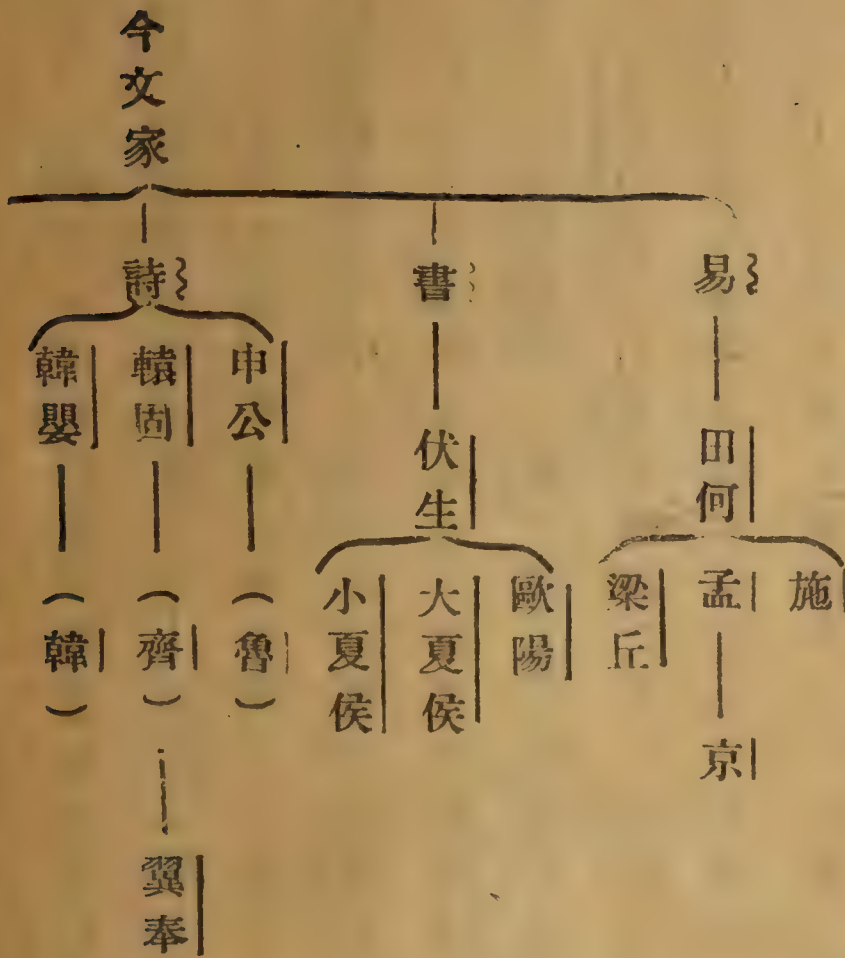 今文家
易
田何
施
孟
京
梁丘
書
伏生
歐陽
大夏侯
小夏侯
詩
申公
（魯）
轅固
（齊）
翼奉
韓嬰
（韓）